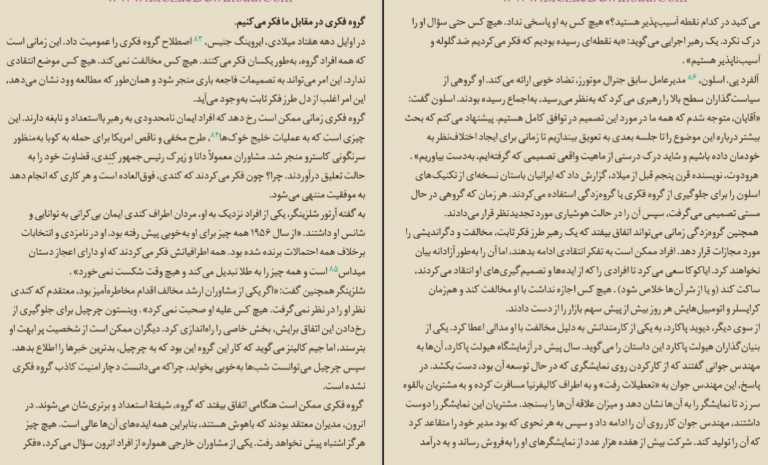 گروه فکری در مقابل ما فکر می‌کنیم.
در اوایل دهه هفتاد میلادی، ایروینگ جنیس، ۸۳ اصطلاح گروه فکری را عمومیت داد. این زمانی است
که همه افراد گروه، به‌طور یکسان فکر می‌کنند. هیچ کس مخالفت نمی‌کند. هیچ کس موضع انتقادی
ندارد. این امر می‌تواند به تصمیمات فاجعه باری منجر شود و همان‌طور که مطالعه وود نشان می‌دهد،
این امر اغلب از دل طرز فکر ثابت به‌وجود می‌آید.
گروه فکری زمانی ممکن است رخ دهد که افراد ایمان نامحدودی به رهبر بااستعداد و نابغه دارند. این
چیزی است که به عملیات خلیج خوک‌ها۸۴، طرح مخفی و ناقص امریکا برای حمله به کوبا به‌منظور
سرنگونی کاسترو منجر شد. مشاوران معمولاً دانا و زیرک رئیس‌جمهور کندی، قضاوت خود را به
حالت تعلیق درآوردند. چرا؟ چون فکر می‌کردند که کندی، فوق‌العاده است و هر کاری که انجام دهد
به موفقیت منتهی می‌شود.
به گفته آرتور شلزینگر، یکی از افراد نزدیک به او، مردان اطراف کندی ایمان بی‌کرانی به توانایی و
شانس او داشتند. «از سال ۱۹۵۶ همه چیز برای او به‌خوبی پیش رفته بود. او در نامزدی و انتخابات
برخلاف همه احتمالات برنده شده بود. همه اطرافیانش فکر می‌کردند که او دارای اعجاز دستان
میداس۸۵ است و همه چیز را به طلا تبدیل می‌کند و هیچ وقت شکست نمی‌خورد» .
شلزینگر همچنین گفت: «اگر یکی از مشاوران ارشد مخالف اقدام مخاطره‌آمیز بود، معتقدم که کندی
نظر او را در نظر نمی‌گرفت. هیچ کس علیه او صحبت نمی‌کرد» . وینستون چرچیل برای جلوگیری از
رخ‌دادن این اتفاق برایش، بخش خاصی را راه‌اندازی کرد. دیگران ممکن است از شخصیت پر ابهت او
بترسند، اما جیم کالینز می‌گوید که کار این گروه این بود که به چرچیل، بدترین خبرها را اطلاع بدهد.
سپس چرچیل می‌توانست شب‌ها به‌خوبی بخوابد، چراکه می‌دانست دچار امنیت کاذب گروه فکری
نشده است.
گروه فکری ممکن است هنگامی اتفاق بیفتد که گروه، شیفتهٔ استعداد و برتری‌شان می‌شوند. در
انرون، مدیران معتقد بودند که باهوش هستند، بنابراین همه ایده‌های آن‌ها عالی است. هیچ چیز
هرگز اشتباه پیش نخواهد رفت. یکی از مشاوران خارجی همواره از افراد انرون سؤال می‌کرد، «فکر
می‌کنید در کدام نقطه آسیب‌پذیر هستید؟» هیچ کس به او پاسخی نداد. هیچ کس حتی سؤال او را
درک نکرد. یک رهبر اجرایی می‌گوید: «به نقطه‌ای رسیده بودیم که فکر می‌کردیم ضد گلوله و
آسیب‌ناپذیر هستیم» .
آلفرد پی. اسلون، ۸۶ مدیرعامل سابق جنرال موتورز، تضاد خوبی ارائه می‌کند. او گروهی از
سیاست‌گذاران سطح بالا را رهبری می‌کرد که به‌نظر می‌رسید، به‌اجماع رسیده بودند. اسلون گفت:
«آقایان، متوجه شدم که همه ما در مورد این تصمیم در توافق کامل هستیم. پیشنهاد می‌کنم که بحث
بیشتر درباره این موضوع را تا جلسه بعدی به تعویق بیندازیم تا زمانی برای ایجاد اختلاف‌نظر به
خودمان داده باشیم و شاید درک درستی از ماهیت واقعی تصمیمی که گرفته‌ایم، به‌دست بیاوریم» .
هرودوت، نویسنده قرن پنجم قبل از میلاد، گزارش داد که ایرانیان باستان نسخه‌ای از تکنیک‌های
اسلون را برای جلوگیری از گروه فکری یا گروه‌زدگی استفاده می‌کردند. هر زمان که گروهی در حال
مستی تصمیمی می‌گرفت، سپس آن را در حالت هوشیاری مورد تجدیدنظر قرار می‌دادند.
همچنین گروه‌زدگی زمانی می‌تواند اتفاق بیفتد که یک رهبر طرز فکر ثابت، مخالفت و دگراندیشی را
مورد مجازات قرار دهد. افراد ممکن است به تفکر انتقادی ادامه بدهند، اما آن را به‌طور آزادانه بیان
نخواهند کرد. ایاکوکا سعی می‌کرد تا افرادی را که از ایده‌ها و تصمیم‌گیری‌های او انتقاد می‌کردند،
ساکت کند (و یا از شر آن‌ها خلاص شود) . هیچ کس اجازه نداشت با او مخالفت کند و هم‌زمان
کرایسلر و اتومبیل‌هایش هر روز بیش از پیش سهم بازار را از دست دادند.
از سوی دیگر، دیوید پاکارد، به یکی از کارمندانش به دلیل مخالفت با او مدالی اعطا کرد. یکی از
بنیان‌گذاران هیولت پاکارد این داستان را می‌گوید. سال پیش در آزمایشگاه هیولت پاکارد، آن‌ها به
مهندس جوانی گفتند که از کار کردن روی نمایشگری که در حال توسعه آن بود، دست بکشد. در
پاسخ، این مهندس جوان به «تعطیلات رفت» و به اطراف کالیفرنیا مسافرت کرده و به مشتریان بالقوه
سر زد تا نمایشگر را به آن‌ها نشان دهد و میزان علاقه آن‌ها را بسنجد. مشتریان این نمایشگر را دوست
داشتند، مهندس جوان کار روی آن را ادامه داد و سپس به هر نحوی که بود مدیر خود را متقاعد کرد
که آن را تولید کند. شرکت بیش از هفده هزار عدد از نمایشگرهای او را به‌فروش رساند و به درآمد